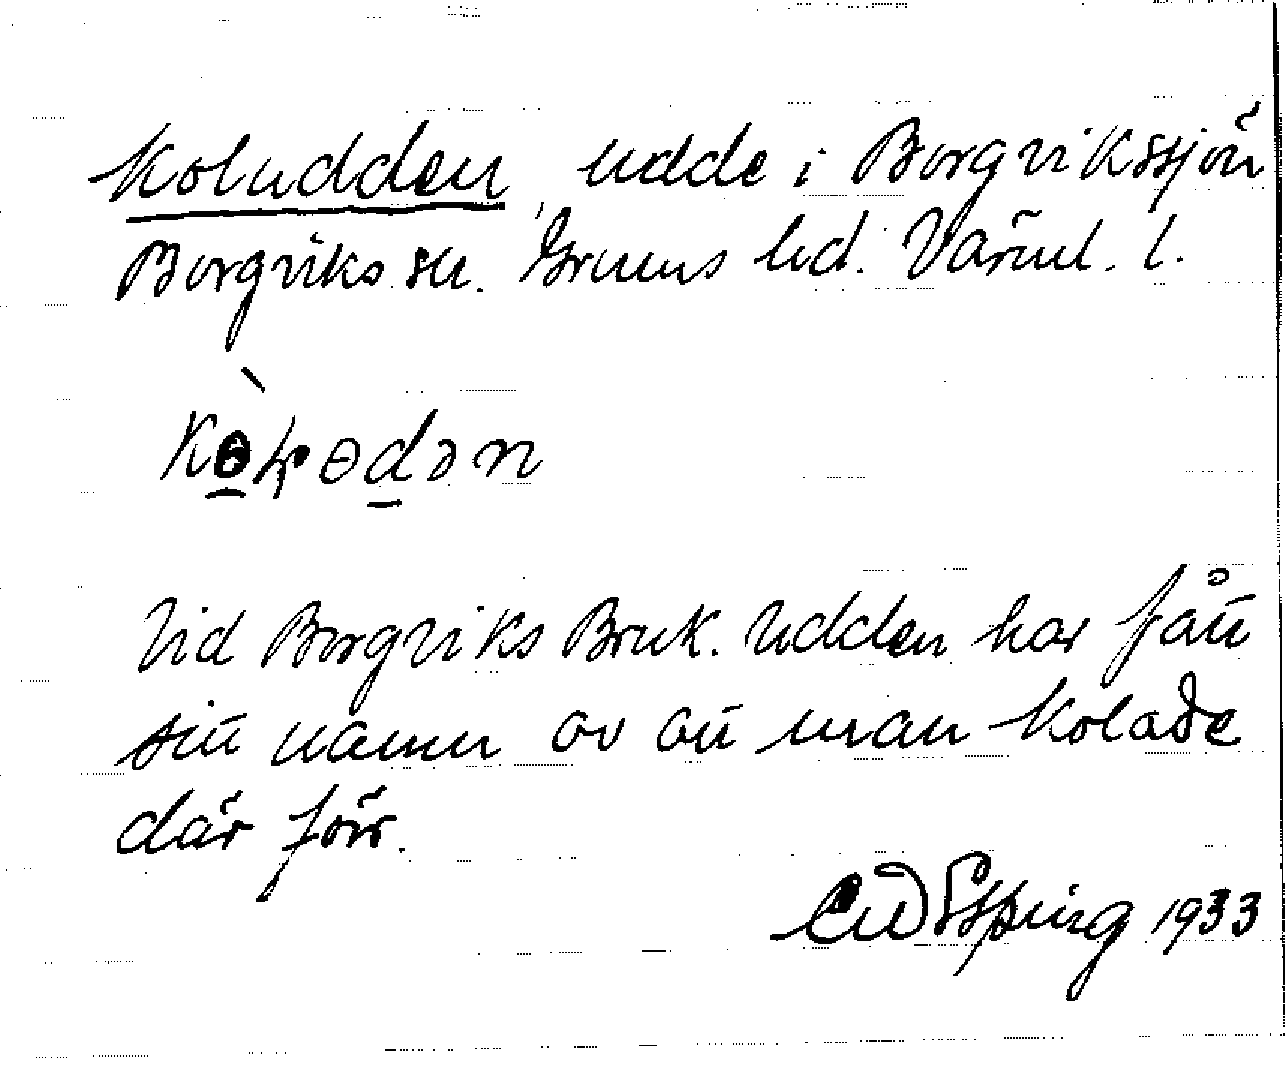 Koludden, udde i Borgvikssjön
Borgviks sn. Grums hd. Värml. l.
kɵ̀ɽɵdən
Vid Borgviks Bruk. Udden har fått
sitt namn av att man kolade
där förr.
Esping 1933